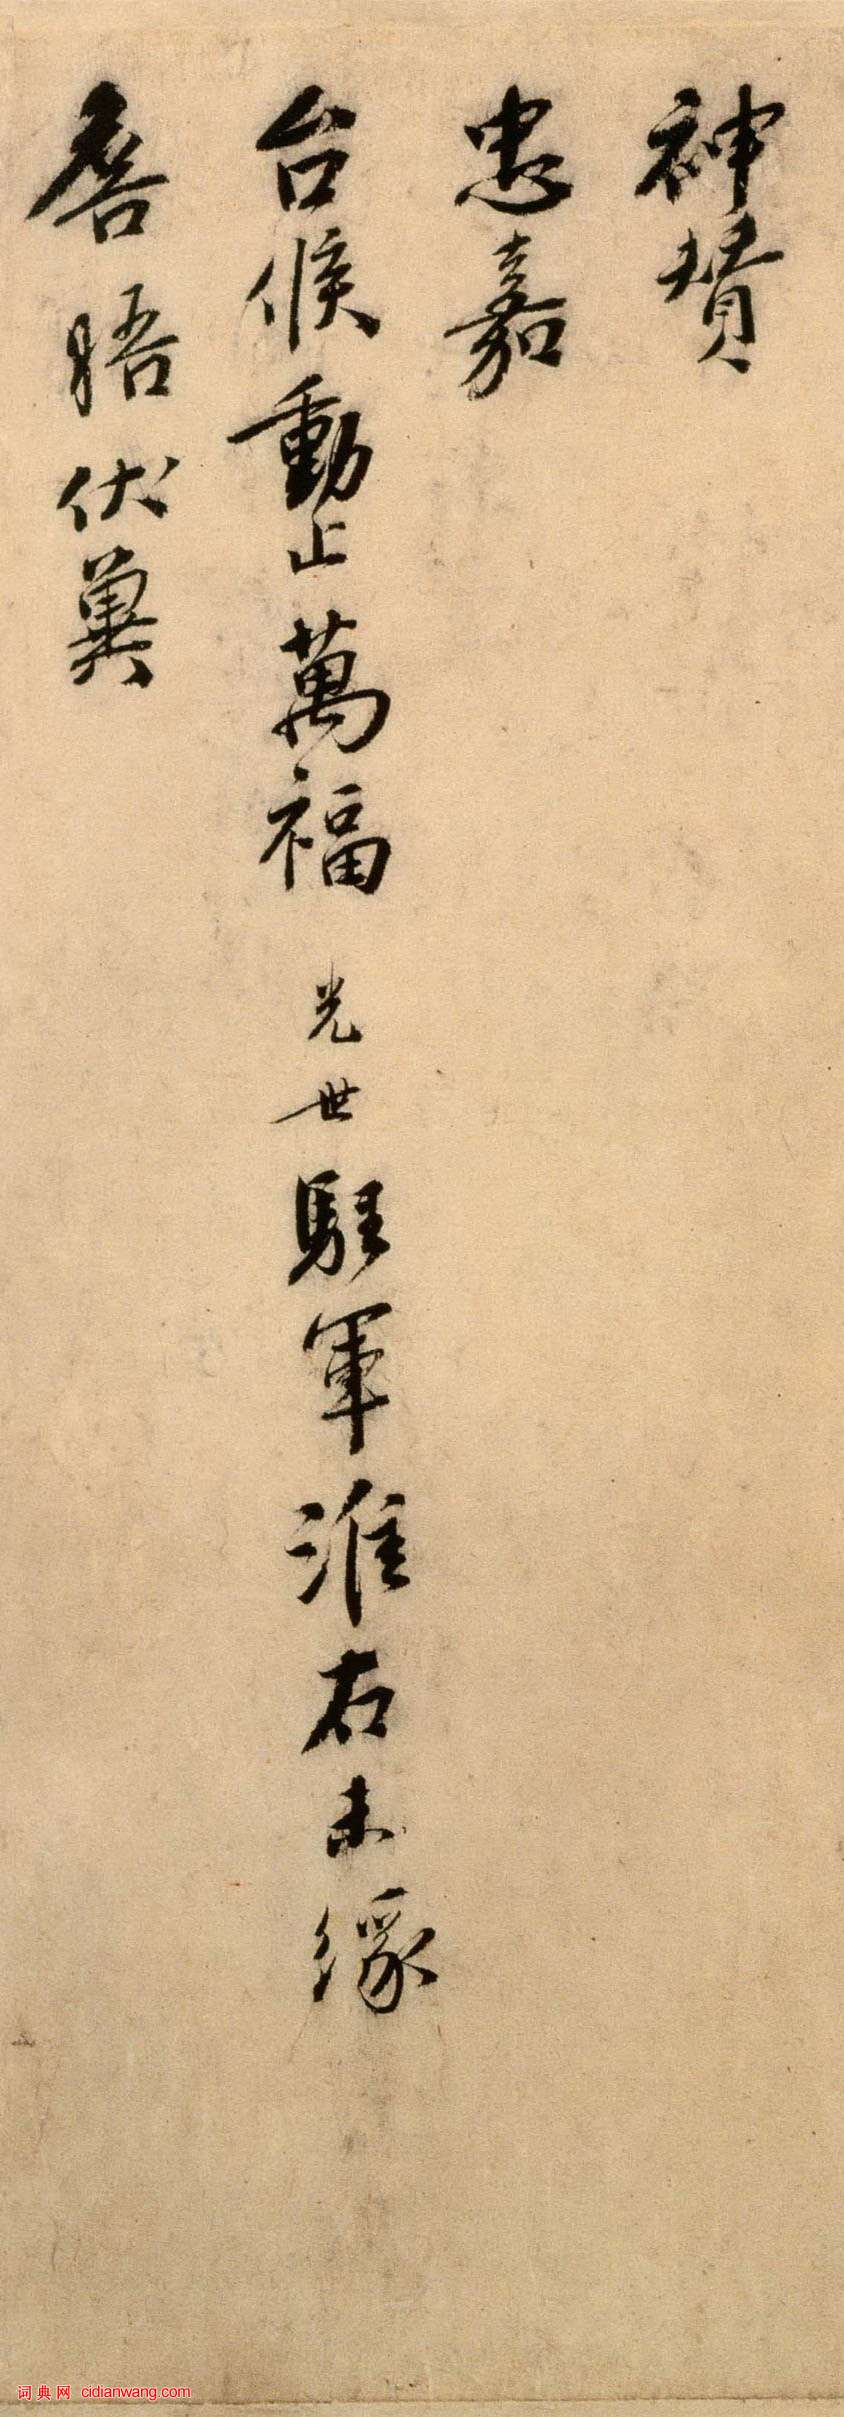 神贊
忠嘉
台候動止萬福光世駐軍淮右未緣
詹晤伏冀
词典网 cidianwang.com